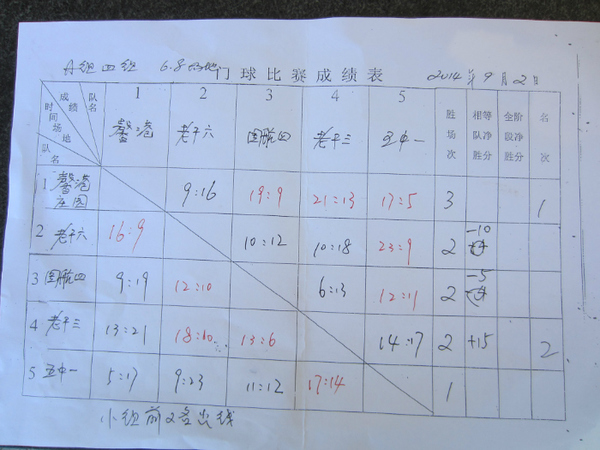 A组 四组 6.8场地 门球比赛成绩表 2014年9月2日
成绩 队名 时间 场地 队名 1 2 3 4 5 胜场次 相等队净胜分 全阶段净胜分 名次
馨港 老干六 国航四 老干三 五中一
1 馨港庄园 9:16 19:9 21:13 17:5 3 1
2 老干六 16:9 10:12 10:18 23:9 2 -10
3 国航四 9:19 12:10 6:13 12:11 2 -5
4 老干三 13:21 18:10 13:6 14:17 2 +15 2
5 五中一 5:17 9:23 11:12 17:14 1
小组前2名出线